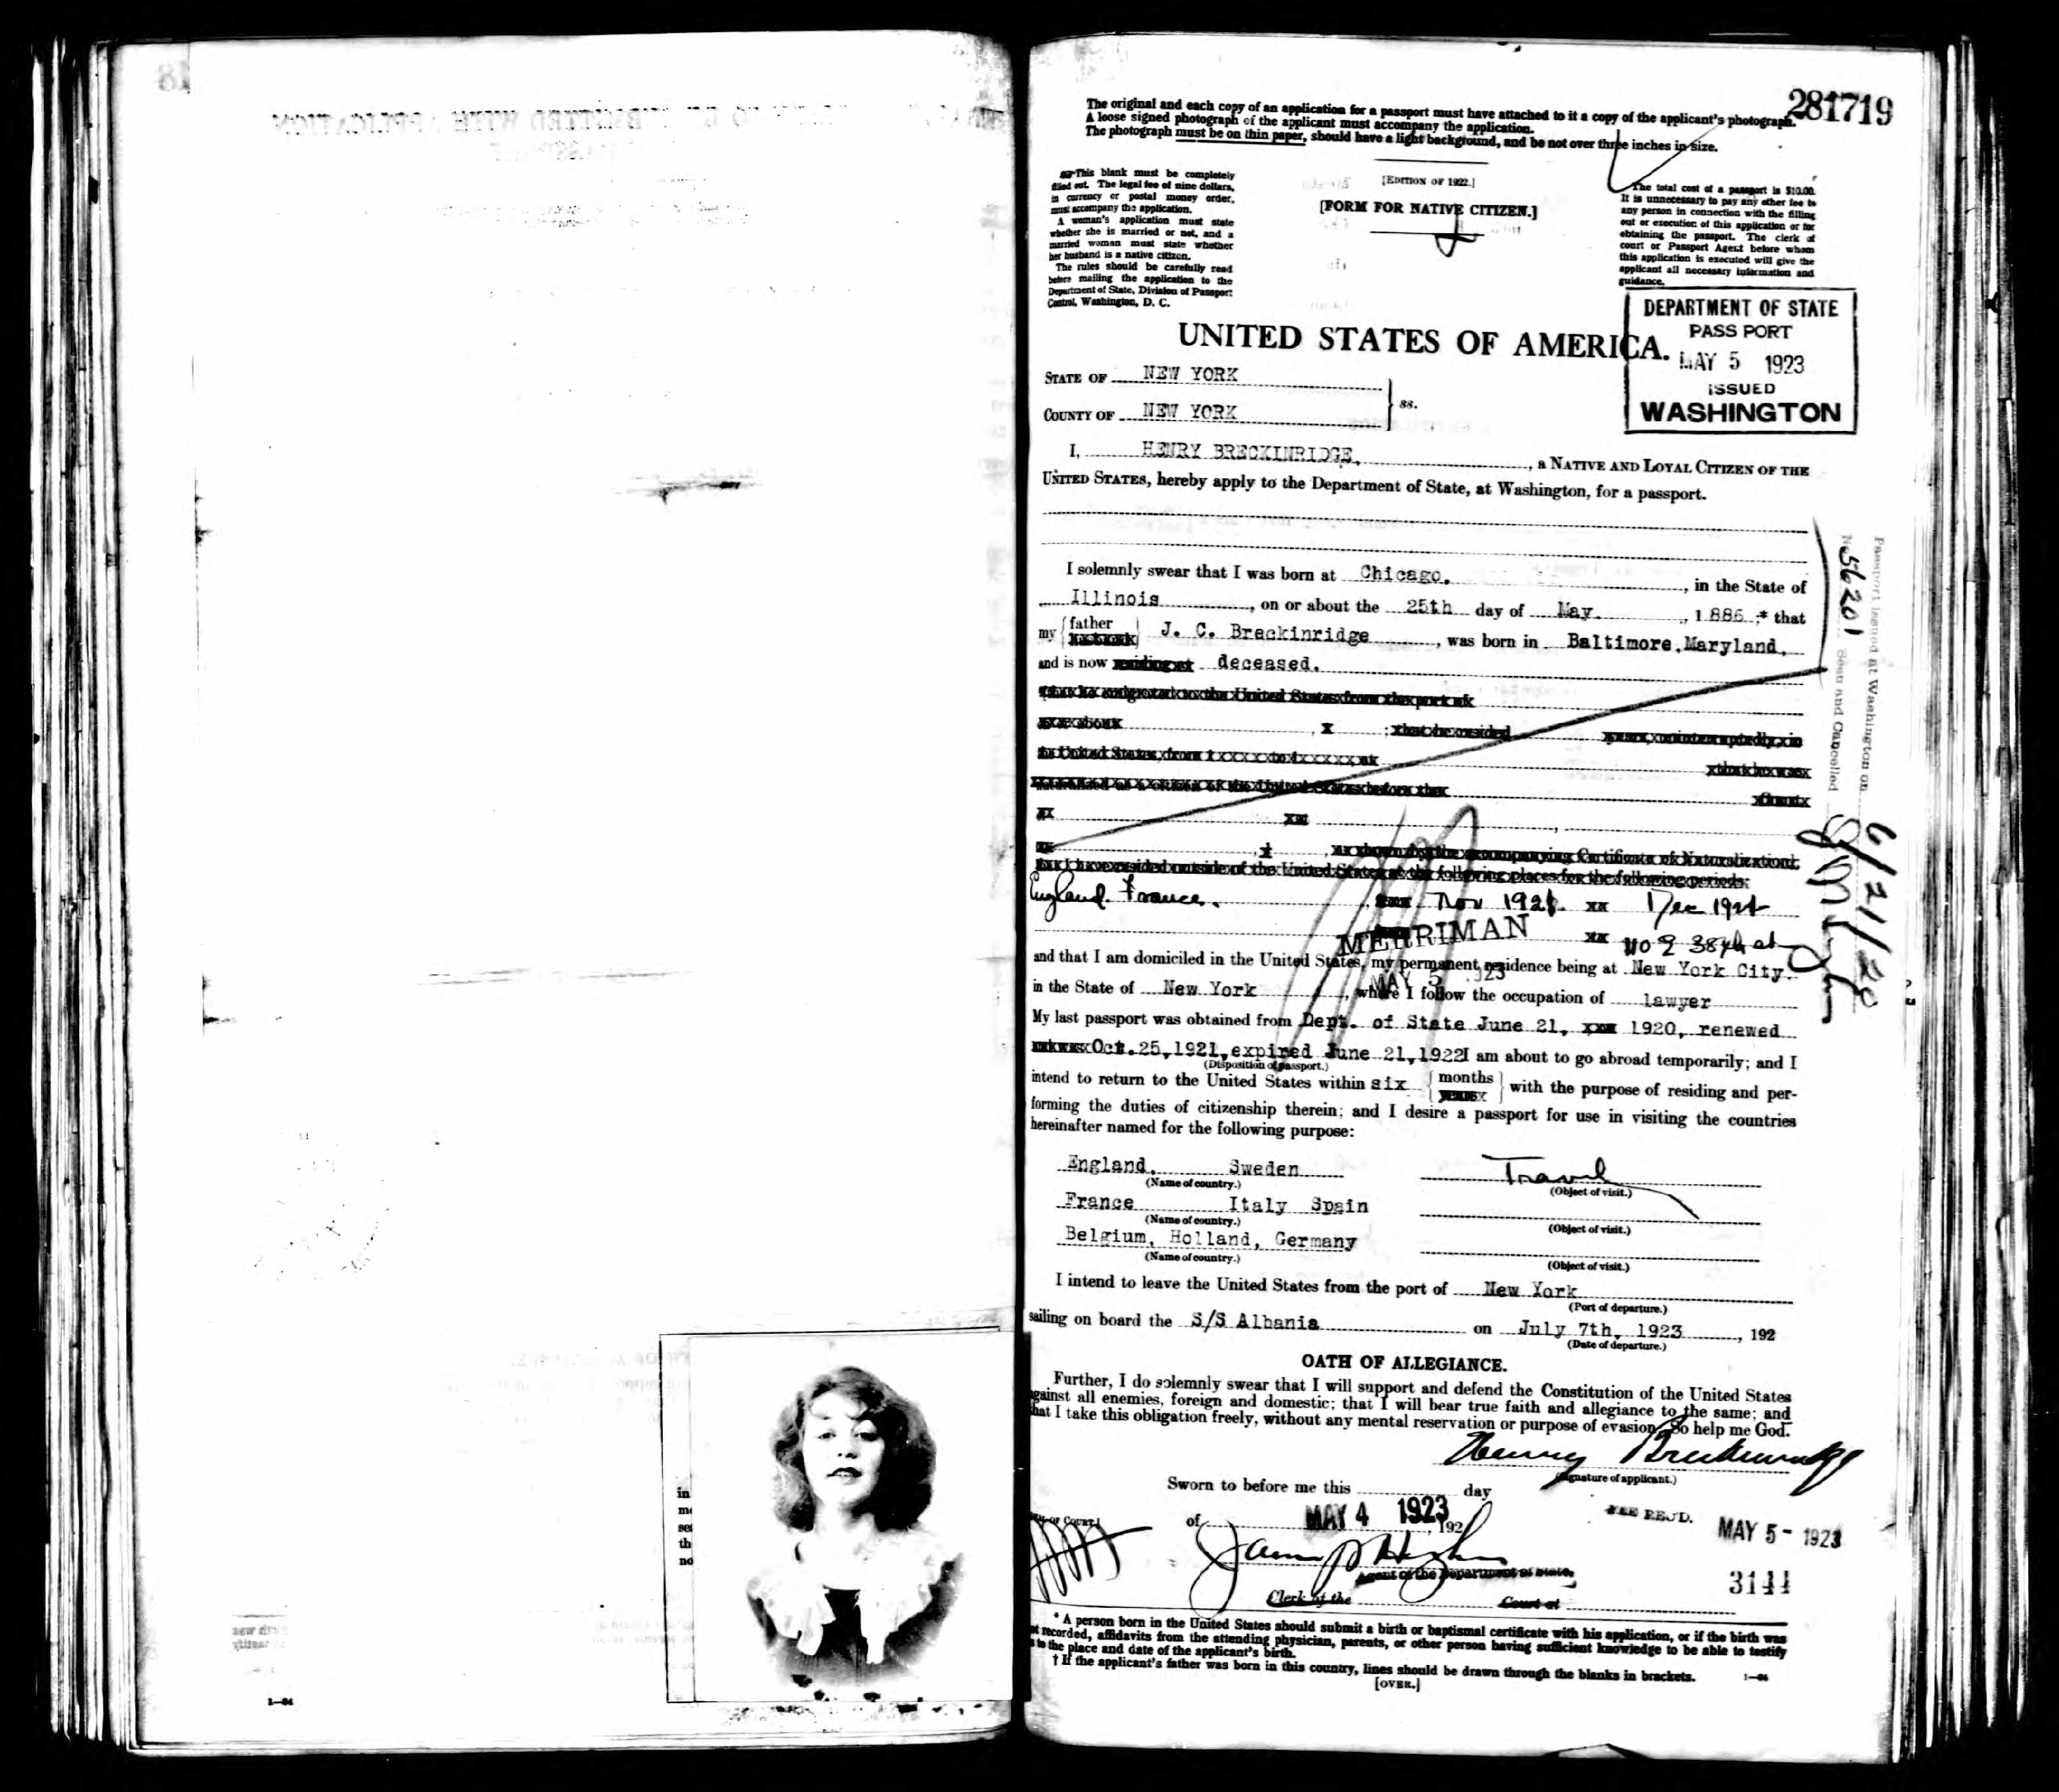 281719
The original and each copy of an application for a passport must have attached to it a copy of the applicant's photograph.
A loose signed photograph of the applicant must accompany the application.
The photograph must be on thin paper, should have a light background, and be not over three inches in size.
This blank must be completely
filled out. The legal fee of nine dollars,
in currency or postal money order,
must accompany the application.
A woman's application must state
whether she is married or not, and a
married woman must state whether
her husband is a native citizen.
The rules should be carefully read
before mailing the application to the
Department of State, Division of Passport
Control, Washington, D. C.
[EDITION OF 1922.]
[FORM FOR NATIVE CITIZEN.]
The total cost of a passport is $10.00.
It is unnecessary to pay any other fee to
any person in connection with the filling
out or execution of this application or for
obtaining the passport. The clerk of
court or Passport Agent before whom
this application is executed will give the
applicant all necessary information and
guidance.
DEPARTMENT OF STATE
PASS PORT
MAY 5 1923
ISSUED
WASHINGTON
UNITED STATES OF AMERICA.
STATE OF NEW YORK
COUNTY OF NEW YORK
ss.
I, HENRY BRECKINRIDGE, , a NATIVE AND LOYAL CITIZEN OF THE
UNITED STATES, hereby apply to the Department of State, at Washington, for a passport.
I solemnly swear that I was born at Chicago. , in the State of
Illinois , on or about the 25th day of May. , 1886 ;* that
my father J. C. Breckinridge , was born in Baltimore, Maryland,
and is now deceased.
Passport issued at Washington on 6/21/20
No 56201 Seen and Cancelled
England. France. Nov 1921. Dec 1921
MERRIMAN
110 E 38th st
and that I am domiciled in the United States, my permanent residence being at New York City.
MAY 5 1923
in the State of New York , where I follow the occupation of lawyer
My last passport was obtained from Dept. of State June 21, 1920, renewed
Oct. 25, 1921, expired June 21, 1922 I am about to go abroad temporarily; and I
(Disposition of passport.)
intend to return to the United States within six months with the purpose of residing and per-
forming the duties of citizenship therein; and I desire a passport for use in visiting the countries
hereinafter named for the following purpose:
England, Sweden Travel
(Name of country.) (Object of visit.)
France Italy Spain
(Name of country.) (Object of visit.)
Belgium, Holland, Germany
(Name of country.) (Object of visit.)
I intend to leave the United States from the port of New York
(Port of departure.)
sailing on board the S/S Albania on July 7th, 1923 , 192
(Date of departure.)
OATH OF ALLEGIANCE.
Further, I do solemnly swear that I will support and defend the Constitution of the United States
against all enemies, foreign and domestic; that I will bear true faith and allegiance to the same; and
that I take this obligation freely, without any mental reservation or purpose of evasion. So help me God.
Henry Breckinridge
(Signature of applicant.)
Sworn to before me this day
of MAY 4 1923 , 192
FEE REC'D. MAY 5 - 1923
Agent of the Department of State.
3144
Clerk of the Court at
* A person born in the United States should submit a birth or baptismal certificate with his application, or if the birth was
recorded, affidavits from the attending physician, parents, or other person having sufficient knowledge to be able to testify
to the place and date of the applicant's birth.
† If the applicant's father was born in this country, lines should be drawn through the blanks in brackets.
1—64
[OVER.]
1—64